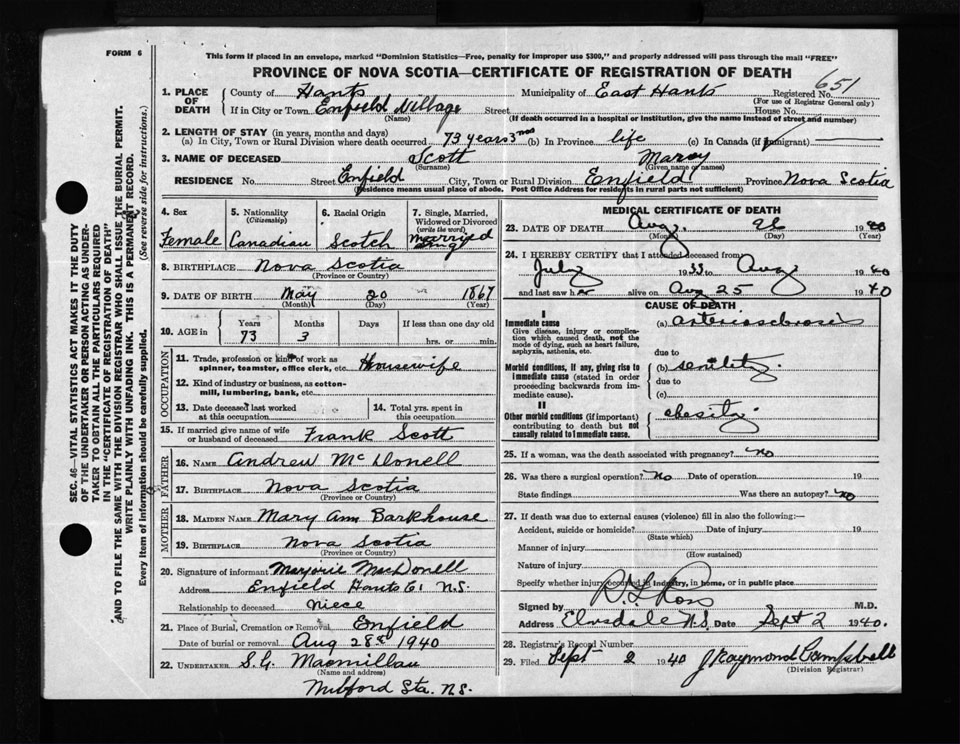 FORM 6
This form if placed in an envelope, marked "Dominion Statistics—Free, penalty for improper use $300," and properly addressed will pass through the mail "FREE"
PROVINCE OF NOVA SCOTIA—CERTIFICATE OF REGISTRATION OF DEATH
651
1. PLACE OF DEATH County of Hants Municipality of East Hants Registered No.
(For use of Registrar General only)
If in City or Town Enfield Village Street House No.
(Name) (If death occurred in a hospital or institution, give the name instead of street and number)
2. LENGTH OF STAY (in years, months and days)
(a) In City, Town or Rural Division where death occurred 73 years 3 mos (b) In Province life (c) In Canada (if immigrant)
3. NAME OF DECEASED Scott Mary
(Surname) (Given name or names)
RESIDENCE No. Street Enfield City, Town or Rural Division Enfield Province Nova Scotia
(Residence means usual place of abode. Post Office Address for residents in rural parts not sufficient)
4. Sex
Female
5. Nationality
(Citizenship)
Canadian
6. Racial Origin
Scotch
7. Single, Married, Widowed or Divorced
(write the word)
Married
8. BIRTHPLACE Nova Scotia
(Province or Country)
9. DATE OF BIRTH May 20 1867
(Month) (Day) (Year)
10. AGE in Years Months Days If less than one day
73 3 hrs. or min.
OCCUPATION
11. Trade, profession or kind of work as spinner, teamster, office clerk, etc. Housewife
12. Kind of industry or business, as cotton-mill, lumbering, bank, etc.
13. Date deceased last worked at this occupation
14. Total yrs. spent in this occupation
15. If married give name of wife or husband of deceased Frank Scott
FATHER
16. NAME Andrew McDonell
17. BIRTHPLACE Nova Scotia
(Province or Country)
MOTHER
18. MAIDEN NAME Mary Ann Barkhouse
19. BIRTHPLACE Nova Scotia
(Province or Country)
20. Signature of informant Marjorie MacDonell
Address Enfield Hants Co. N.S.
Relationship to deceased niece
21. Place of Burial, Cremation or Removal Enfield
Date of burial or removal Aug 28th 1940
22. UNDERTAKER S.G. Macmillan
(Name and address)
Milford Sta. N.S.
MEDICAL CERTIFICATE OF DEATH
23. DATE OF DEATH Aug. 26 1940
(Month) (Day) (Year)
24. I HEREBY CERTIFY that I attended deceased from
July 1933 to Aug 1940
and last saw her alive on Aug 25 1940
CAUSE OF DEATH
I
Immediate cause
Give disease, injury or complication which caused death, not the mode of dying, such as heart failure, asphyxia, asthenia, etc.
(a) arteriosclerosis
due to
Morbid conditions, if any, giving rise to immediate cause (stated in order proceeding backwards from immediate cause).
(b) senility.
due to
(c)
II
Other morbid conditions (if important) contributing to death but not causally related to immediate cause.
obesity
25. If a woman, was the death associated with pregnancy? No
26. Was there a surgical operation? No Date of operation 19
State findings Was there an autopsy? No
27. If death was due to external causes (violence) fill in also the following:—
Accident, suicide or homicide? Date of injury 19
(State which)
Manner of injury
(How sustained)
Nature of injury
Specify whether injury occurred in industry, in home, or in public place
Signed by R L Ross M.D.
Address Elmsdale N.S. Date Sept 2 1940.
28. Registrar's Record Number
29. Filed Sept 2 1940 J Raymond Campbell
(Division Registrar)
SEC. 46—VITAL STATISTICS ACT MAKES IT THE DUTY
OF THE UNDERTAKER OR PERSON ACTING AS UNDER-
TAKER TO OBTAIN ALL THE PARTICULARS REQUIRED
IN THE "CERTIFICATE OF REGISTRATION OF DEATH"
AND TO FILE THE SAME WITH THE DIVISION REGISTRAR WHO SHALL ISSUE THE BURIAL PERMIT.
WRITE PLAINLY WITH UNFADING INK. THIS IS A PERMANENT RECORD.
Every item of information should be carefully supplied. (See reverse side for instructions.)